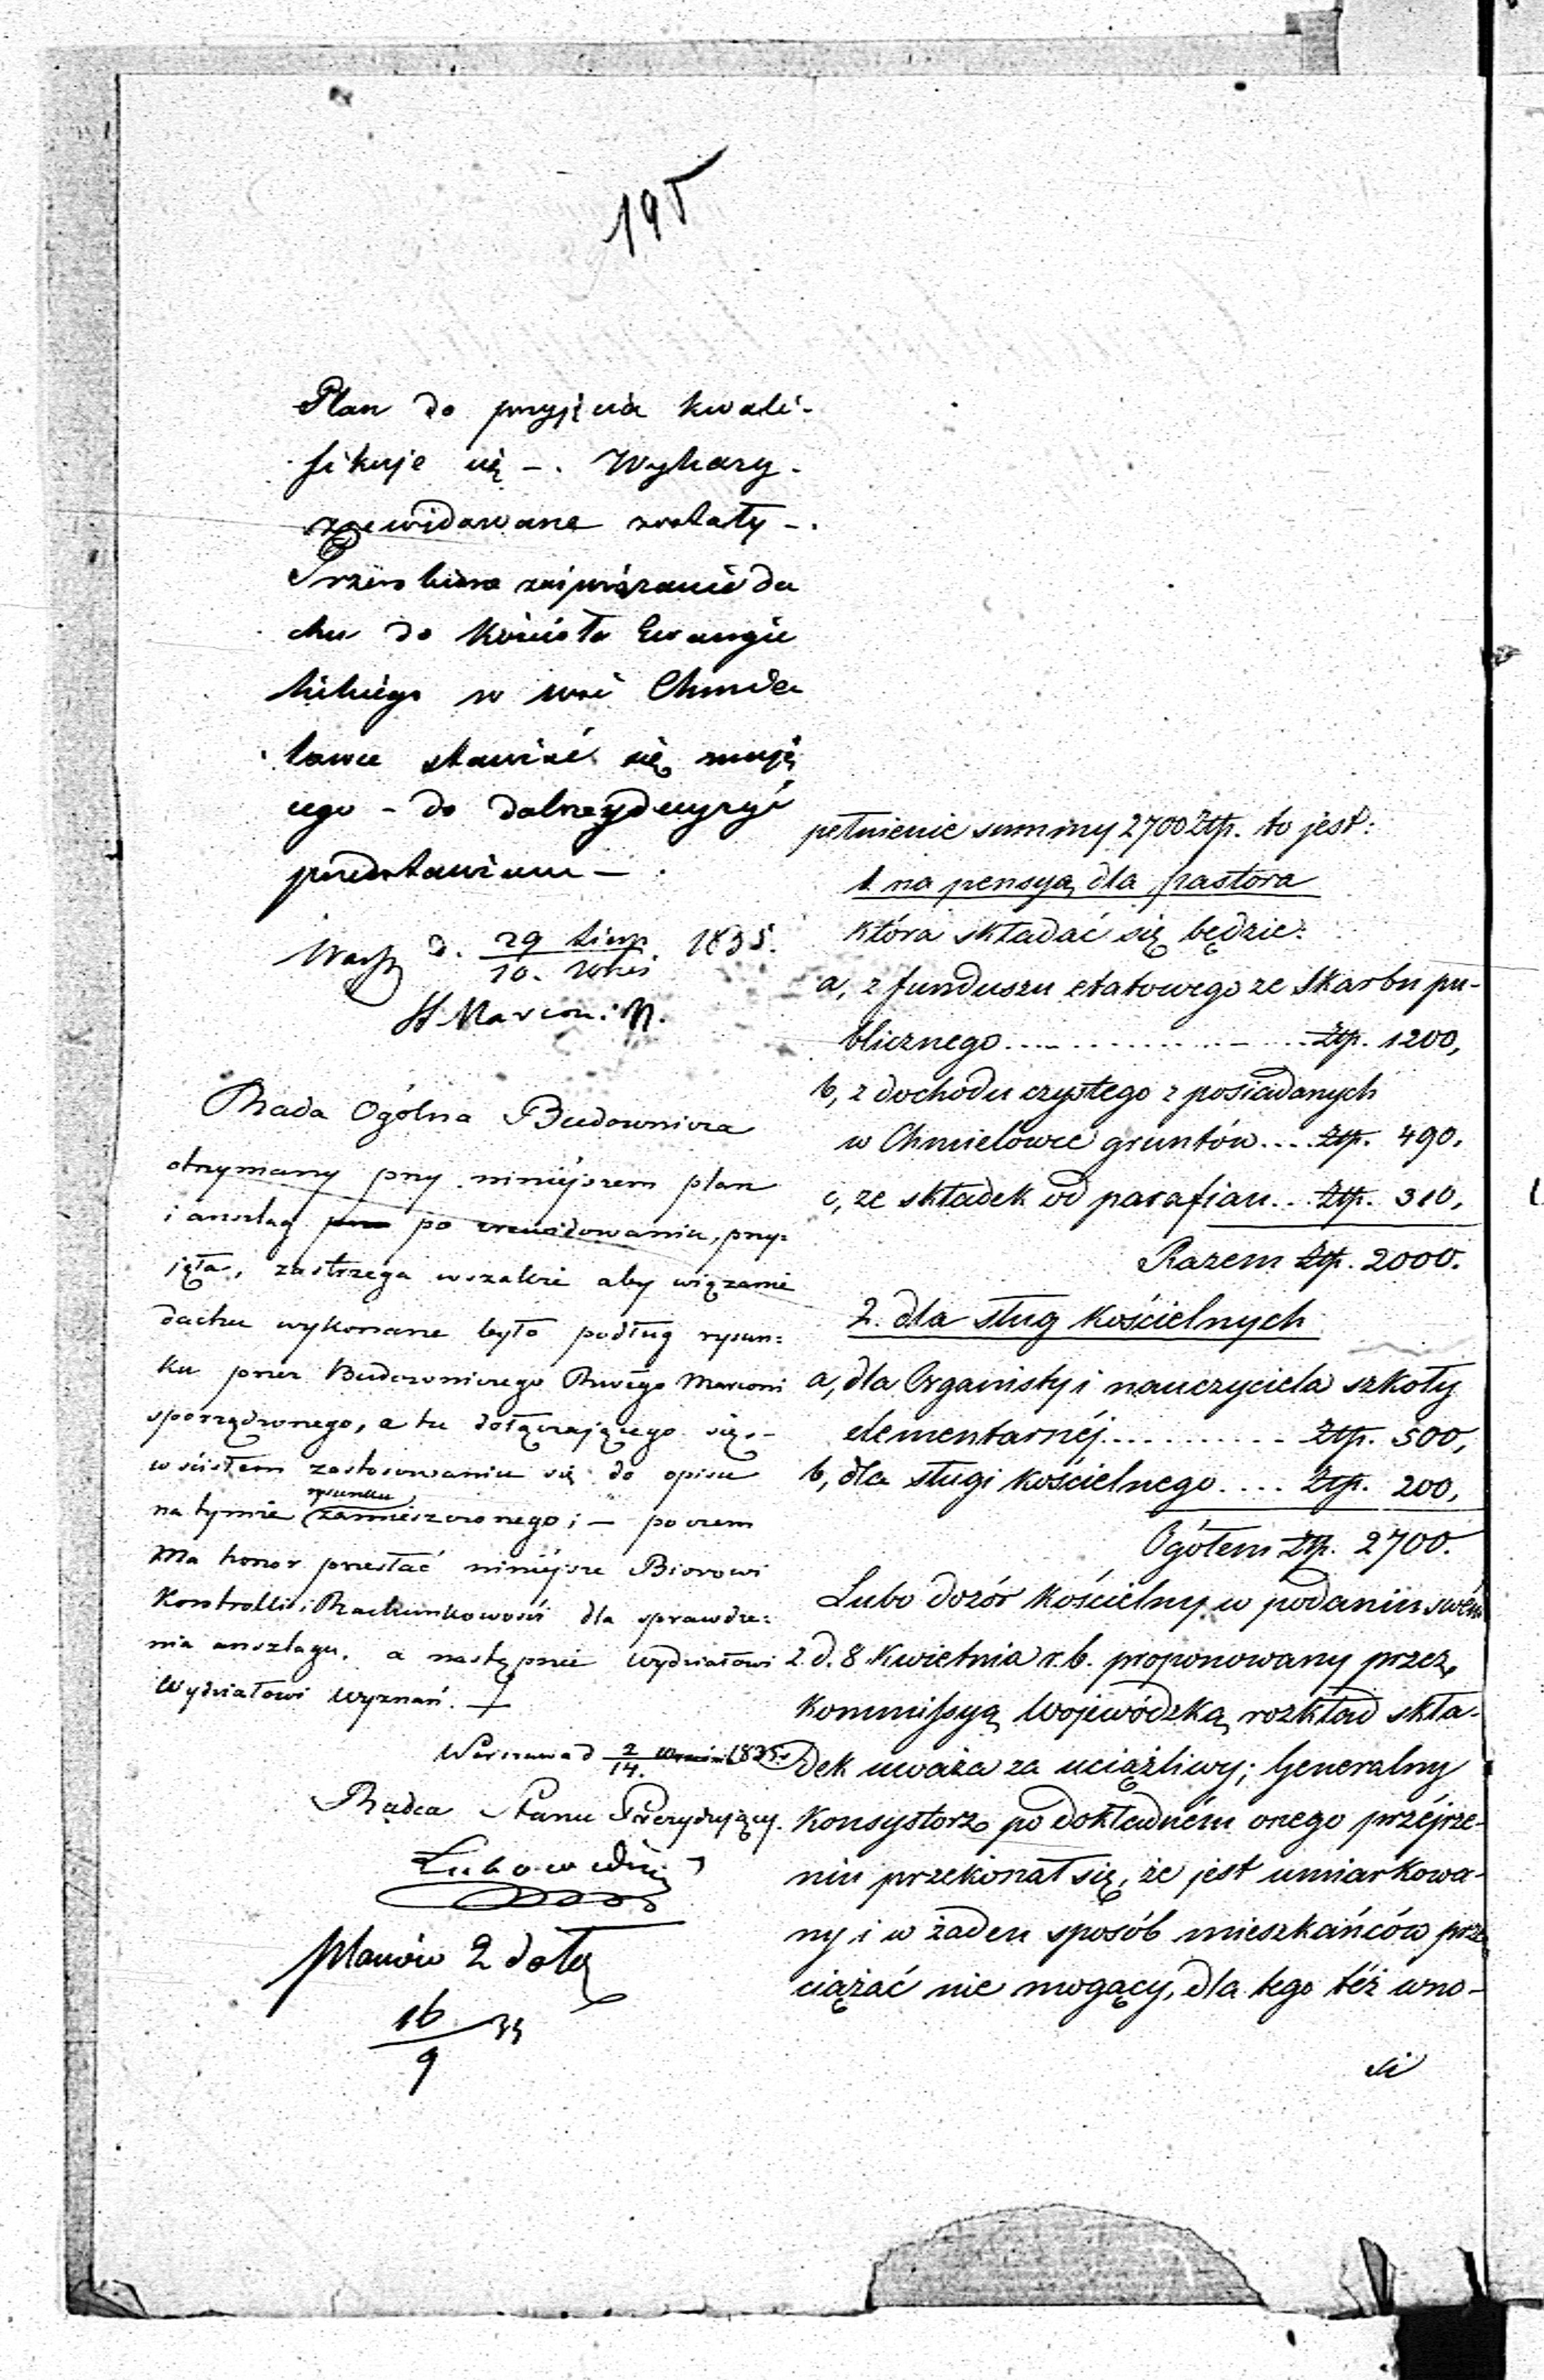 195
Plan do przyjęcia kwali-
fikuje się –. Wykazy
zrewidowane zostały –.
Przerobione zaś wiązanie da
chu do Kościoła Ewangie
lickiego w wsi Chmie
lowce stawiać się mają
cego – do dalszey decyzyi
przedstawiam –.
Warsz d. 29 Sierp / 10. Wrześ 1835.
H Marconi
Rada Ogólna Budownicza
otrzymany przy niniejszem plan
i anszlag po zrewidowaniu, przy=
jęła, zastrzega wszakże aby wiązanie
dachu wykonane było podług rysun=
ku przez Budowniczego Rwégo Marconi
sporządzonego, a tu dołączającego się, –
w ścisłem zastosowaniu się do opisu
na tymże rysunku zamieszczonego; – poczem
Ma honor przesłać niniejsze Biorowi
Kontrolli i Rachunkowości dla sprawdze=
nia anszlagu, a następnie Wydziałowi
Wydziałowi Wyznań.
Warszawa d 2/14. Wrześn 1835.
Radca Stanu Prezydujący.
Lubowidzki
planów 2 dołą
16/9 35
pełnienie summy 2700 Złp. to jest:
1. na pensyą dla pastora
która składać się będzie:
a, z funduszu etatowego ze Skarbu pu-
blicznego............ Złp. 1200,
b, z dochodu czystego z posiadanych
w Chmielowce gruntów.... Złp. 490.
c, ze składek od parafian... Złp. 310,
Razem Złp. 2000.
2. dla sług kościelnych
a, dla Organisty i nauczyciela szkoły
elementarnéj........... Złp. 500,
b, dla sługi kościelnego.... Złp. 200,
Ogółem Złp. 2700.
Lubo dozór kościelny w podaniu swém
z d. 8 Kwietnia r. b. proponowany przez
Kommissyą Wojewódzką rozkład skła-
dek uważa za uciążliwy; Generalny
Konsystorz po dokładném onego przéjrze-
niu przekonał się, że jest umiarkowa-
ny i w żaden sposób mieszkańców prze
ciążać nie mogący, dla tego téż wno-
si